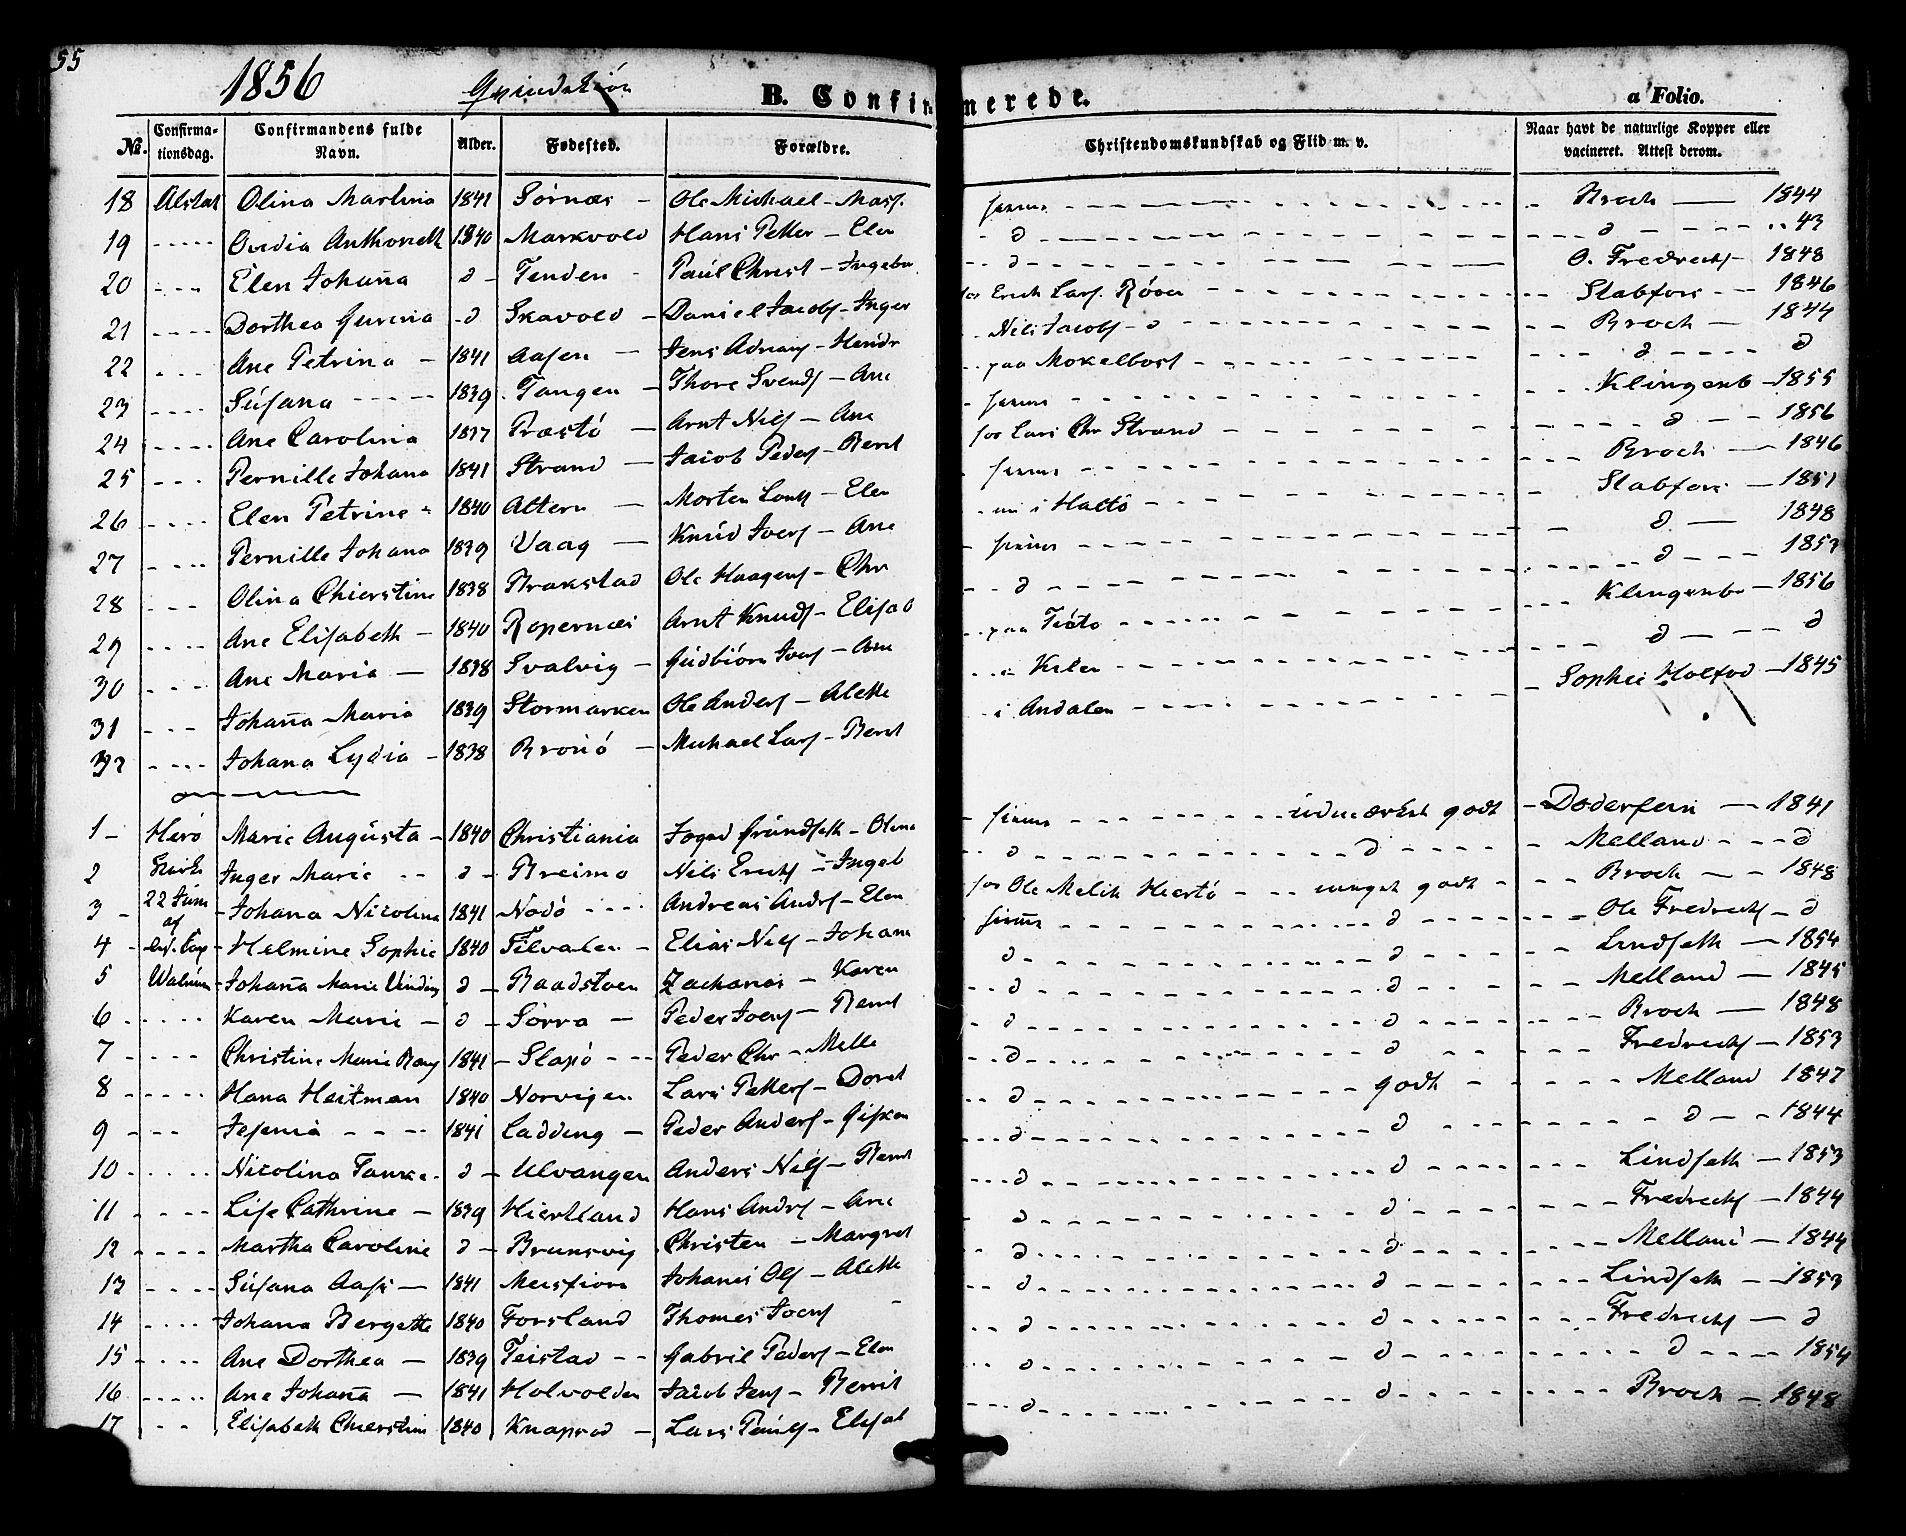 55
1856 Qvindekiön B. Confirmerede. a Folio.
No. Confirmationsdag. Confirmandens fulde Navn. Alder. Fødested. Forældre. Christendomskundskab og Flid m. v. Naar havt de naturlige Kopper eller vacineret. Attest derom.
18 Alstah Olina Martina 1841 Sörnæs - Ole Michael - Broch 1844
19 Anthonett 1840 Markvold Hans Petter - Elen d d 43
20 Elen Johana d - Tenden - Paul Christ - Ingebor d O. Fredrechs 1848
21 Dorthea Gurina - d Skavold - Daniel Jacobs - Inger for Erich Lars. Röøen Slabfors 1846
22 Ane Petrina - 1841 Aasen - Jens Adrians - Hendr Nils Jacobs - d Broch 1844
23 Susana 1839 Tangen - Thore Svends - Ane paa Mokelbost d d
24 Ane Carolina 1837 Præstö - Arnt Nils - Ane Klingenb 1855
25 Pernille Johana 1841 Strand - Jacob Peders - Beret for Lars Chr Strand d 1856
26 Elen Petrine - 1840 Altern - Morten - Elen Broch 1846
27 Pernille Johana 1839 Vaag - Knud Ivers - Ane i Haltö Slabfors 1851
28 Olina Chierstine 1838 Brakstad Ole Haagens - Chr d 1848
29 Ane Elisabeth - 1840 Ropernæs Arnt Knuds - Elisab d d 1853
30 Ane Maria - 1838 Svalvig - Gudbiörn Ivers - Ane paa Tiöto Klingenbr 1856
31 Johana Maria 1839 Stormarken Ole Anders - Alette i Kilen d d
32 Johana Lydia - 1838 Bronö - Michael Lars - Beret i Andalen Sophie Holfod 1845
1 - Herö Marie Augusta - 1840 Christiania Grundseth - Olena udmærket godt Døderlein 1841
2 Kirk Inger Marie d - Breimo Nils Erichs - Ingeb d d Melland d
3 - 22 Juni Johana Nicolina 1841 Nodö Andreas Anders - Elen for Ole Melik Hiertö meget godt Broch 1848
af
4 - Cap Helmine Sophie 1840 Tilvalen - Elias Nils - Johana d Ole Fredrechs d
5 Walnum Johana Marie Vinding d - Baadstoen Zacharias - Karen d d Lindseth 1854
6 Karen Marie - d - Sörra - Peder Ivers - Beret d d Melland 1845
7 Christine Marie 1841 - Slapö Peder Chr - Mette d d Broch 1848
8 Hana Heitman 1840 Norvigen Lars Petters - Doret d d Fredrechs 1853
9 Jesenia 1841 Ladding - Peder Anders - Gisken d godt Melland 1847
10 Nicolina Tanke d - Ulvangen Anders Nils - Beret d d d 1844
11 Lise Cathrine - 1839 Hiertland Hans Anders - Ane d d Lindseth 1853
12 Martha Caroline d - Brunsvig Christen - Margret d d Fredrechs 1844
13 Susana Aase - 1841 Meisfiord Johanes Ols - Alette d d Melland 1844
14 Johana Bergette 1840 Forsland Thomes Ivers d d Lindseth 1853
15 Ane Dorthea - 1839 Teistad Gabriel Peders - Elen d d Fredrechs d
16 Ane Johana - 1841 Holvolden Jacob Jens - Beret d d d 1854
17 Elisabeth Chierstine 1840 Knaprod - Lars Pauls - Elisab d d Broch 1848